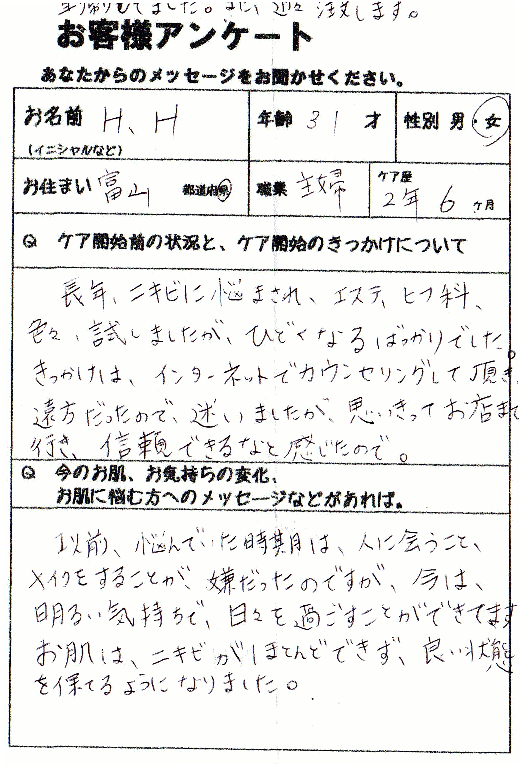 注文します。
お客様アンケート
あなたからのメッセージをお聞かせください。
お名前 H、H 年齢 31 才 性別 男・女
(イニシャルなど)
お住まい 富山 都道府県 職業 主婦 ケア歴 2年 6ヶ月
Q ケア開始前の状況と、ケア開始のきっかけについて
長年、ニキビに悩まされ、エステ、ヒフ科、
色々、試しましたが、ひどくなるばっかりでした。
きっかけは、インターネットでカウンセリングして頂き
遠方だったので、迷いましたが、思いきってお店まで
行き、信頼できるなと感じたので。
Q 今のお肌、お気持ちの変化、
お肌に悩む方へのメッセージなどがあれば。
以前、悩んでいた時期は、人に会うこと、
メイクをすることが、嫌だったのですが、今は、
明るい気持ちで、日々を過ごすことができてます
お肌は、ニキビがほとんどできず、良い状態
を保てるようになりました。